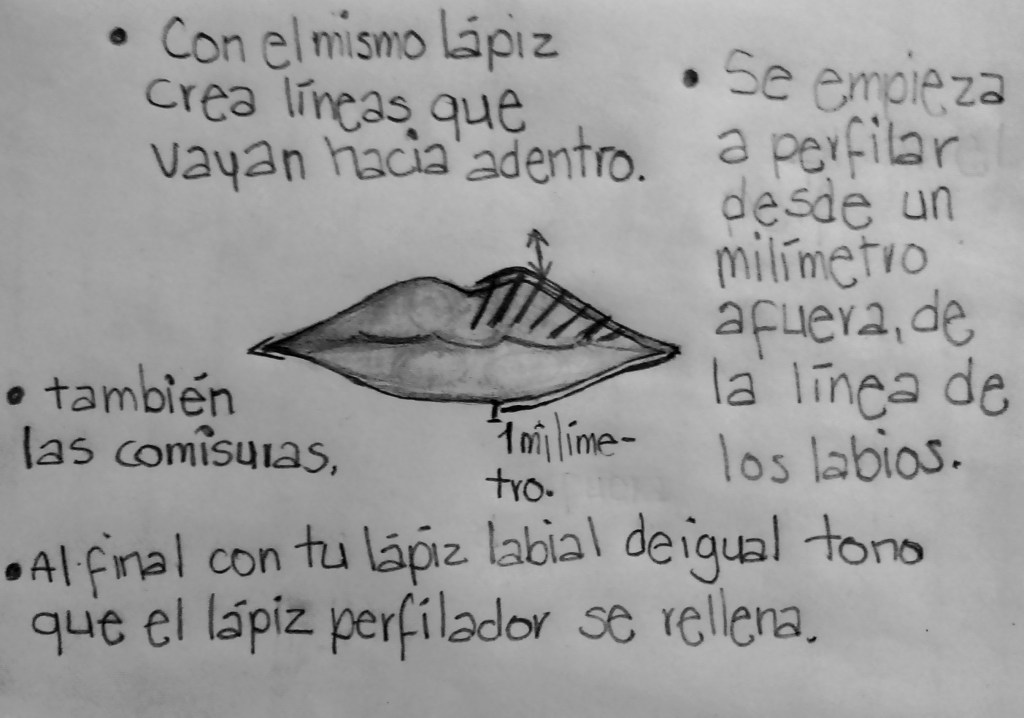 • Con el mismo lápiz
crea líneas que
vayan hacia adentro.
• Se empieza
a perfilar
desde un
milímetro
afuera, de
la línea de
los labios.
• también
las comisuras,
1 milíme-
tro.
• Al final con tu lápiz labial de igual tono
que el lápiz perfilador se rellena.